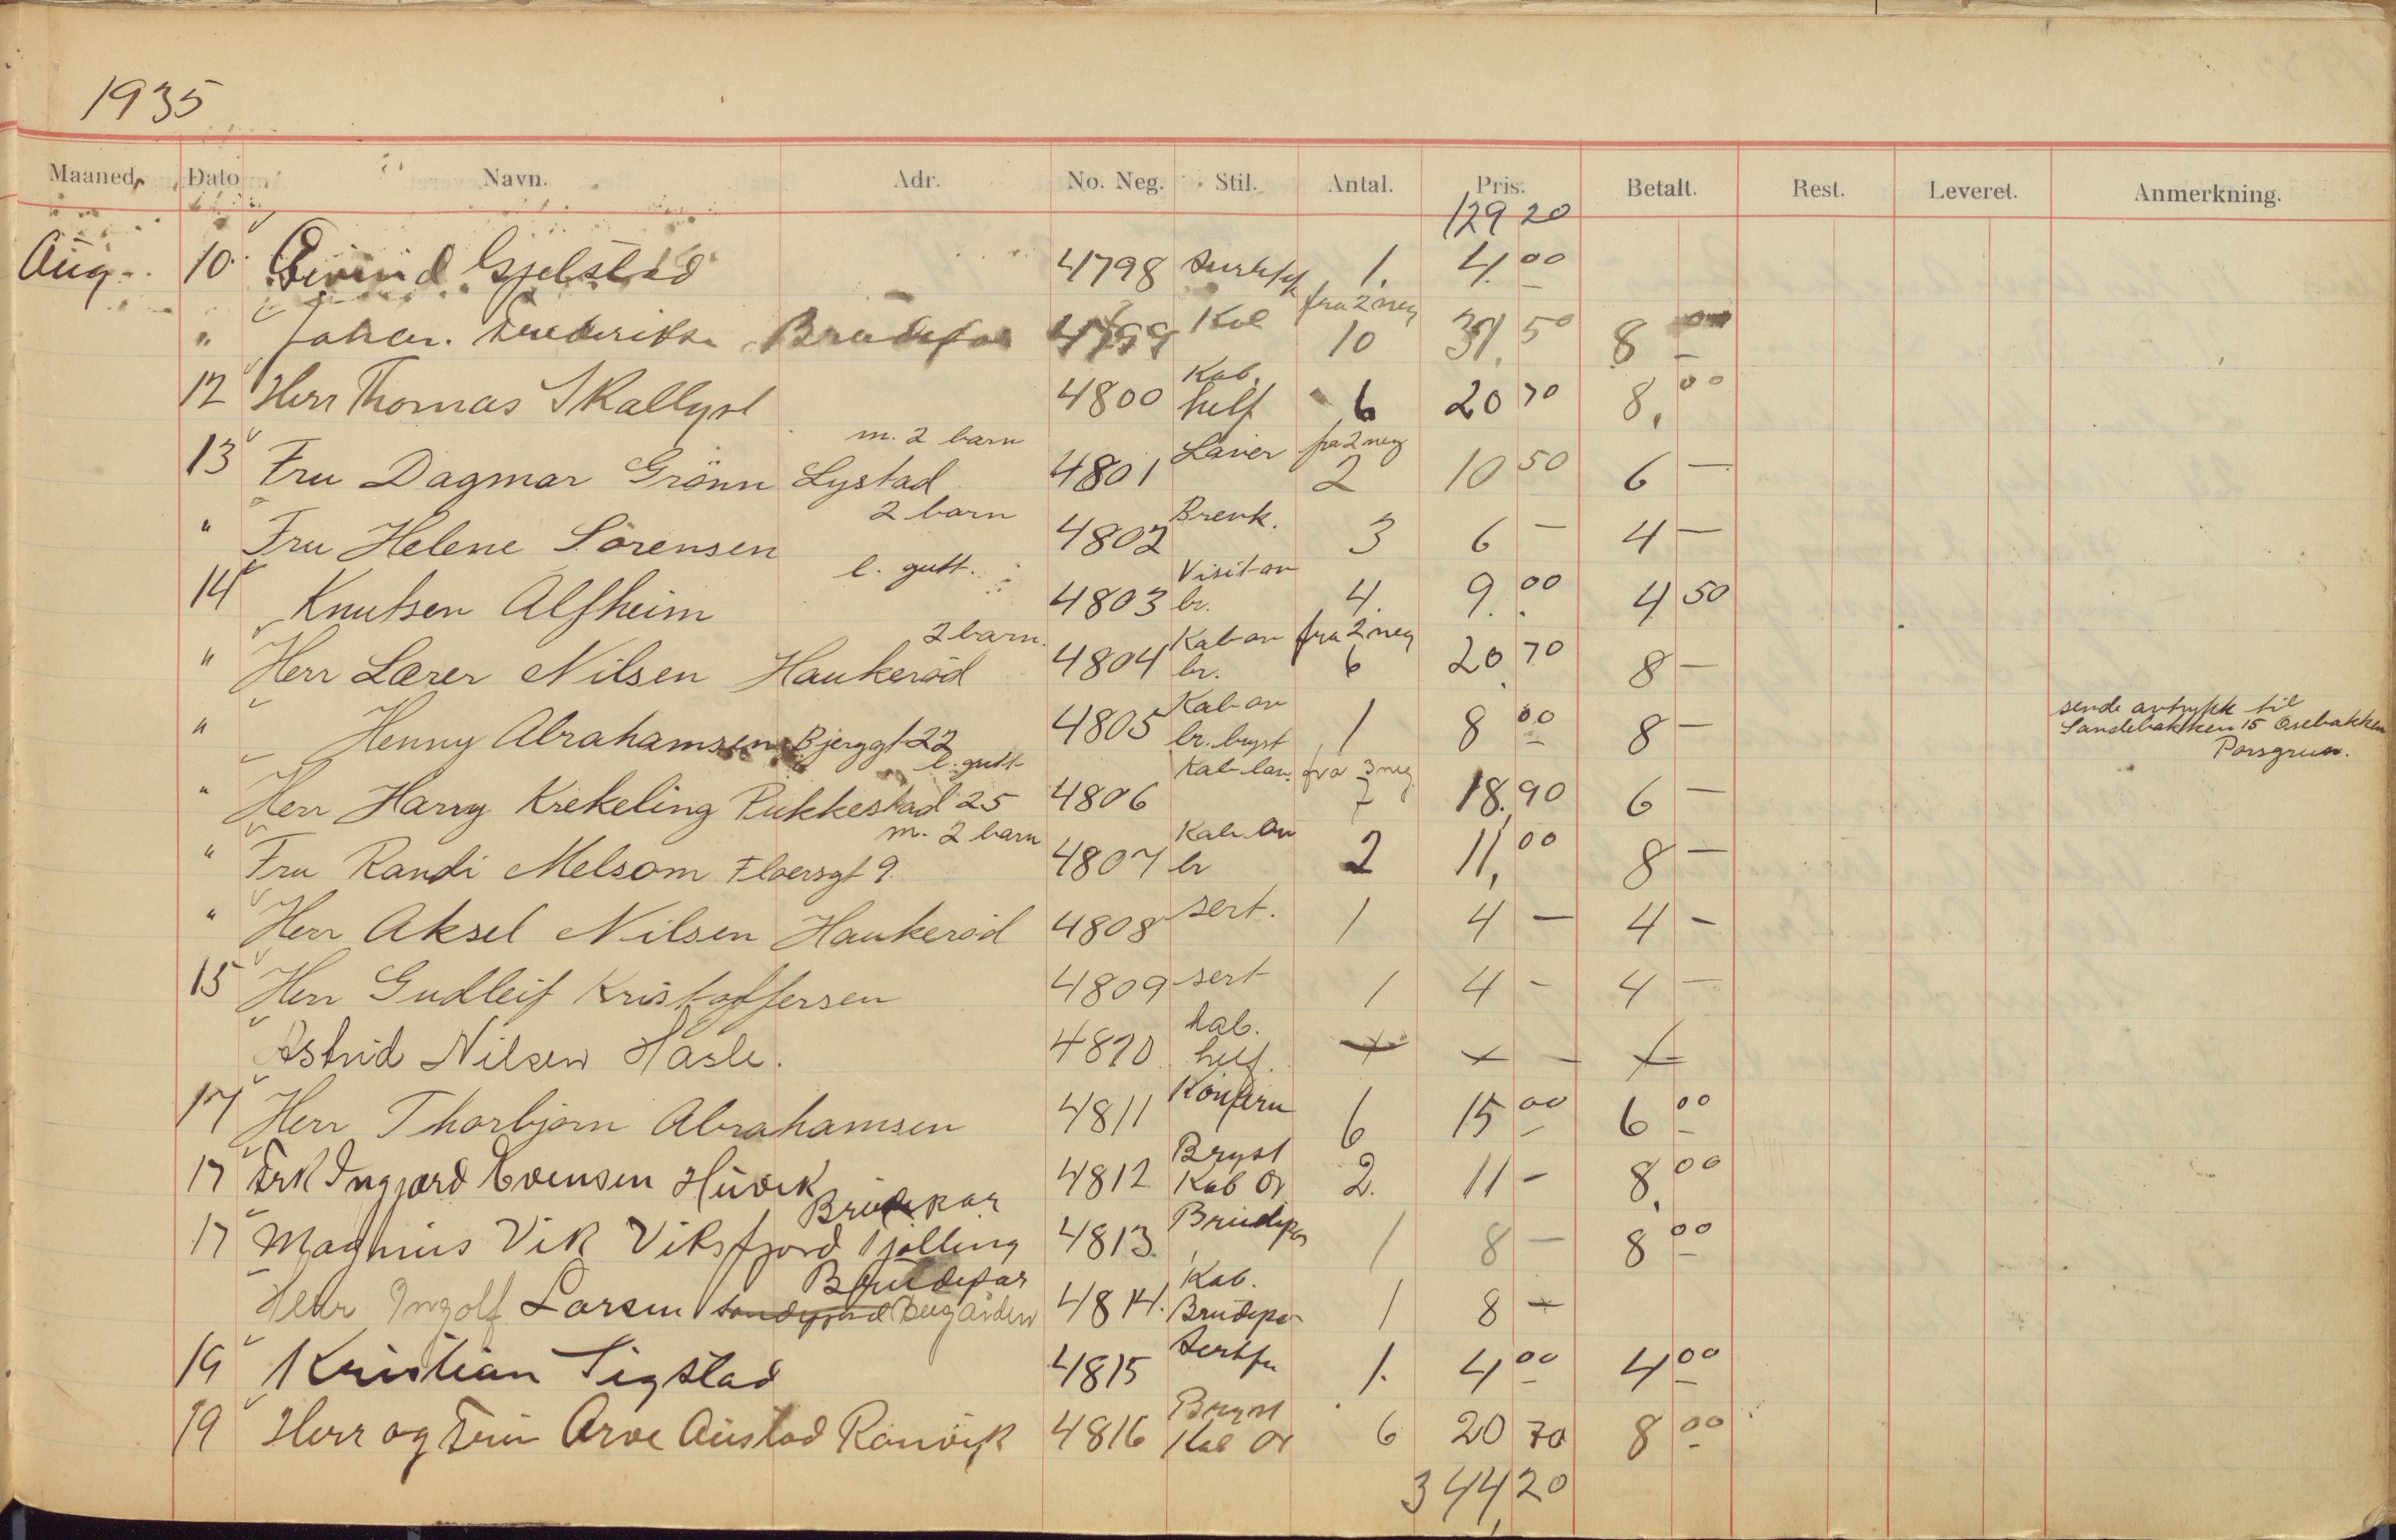 1935
Maaned. Dato Navn. Adr. No. Neg. Stil. Antal. Pris. Betalt. Rest. Leveret. Anmerkning.
129 20
Aug. 10 Eivind Gjelstad 4798 1. 4.00
fra 2 neg
" Johan. Frederiksen Brudepar 4799 Kab 10 31,50 8
Kab.
12 Herr Thomas Skallgst 4800 helf 6 20 70 8,00
m. 2 barn Laver fra 2 neg
13 Fru Dagmar Grönn Lystad 4801 2 10 50 6 —
2 barn Brevk.
" Fru Helene Sörensen 4802 3 6 — 4 —
l. gutt. Visit ov
14 Knutsen Alfheim 4803 br. 4. 9.00 4 50
2 barn. Kab ov fra 2 neg
" Herr Lærer Nilsen Haukeröd 4804 br. 6 20,70 8 —
Kab ov
" Henny Abrahamsen Bjerggt 22 4805 br. bryst 1 8 00 8 —
sende avtrykk til
Sandebakken 15 Osebakken
Porsgrun.
l. gutt Kab lav. fra 3 neg
" Herr Harry Krekeling Pukkestad 25 4806 7 18,90 6 —
m. 2 barn Kab ov
" Fru Randi Melsom Floersgt 9. 4807 br 2 11,00 8 —
" Herr Aksel Nilsen Haukeröd 4808 sert. 1 4 — 4 —
15 Herr Gudleif Kristoffersen 4809 sert 1 4 - 4 —
kab.
Astrid Nilsen Hasle. 4810 helf.
17 Herr Thorbjørn Abrahamsen 4811 Konfirm 6 15 00 6 00
Bryst
17 Frk Ingjærd Evensen Huvik 4812 Kab Ov 2. 11 - 8,00
Brudepar
17 Magnus Vik Viksfjord Tjølling 4813. Brudepar 1 8 — 8 00
Brudepar Kab.
Herr Ingolf Larsen Sandefjord Bugården 4814. Brudepar 1 8 —
19 Kristian Sigstad 4815 1. 4 00 4 00
Bryst
19 Herr og Fru Arve Austad Ranvik 4816 Kab Ov 6 20 70 8 00
344,20